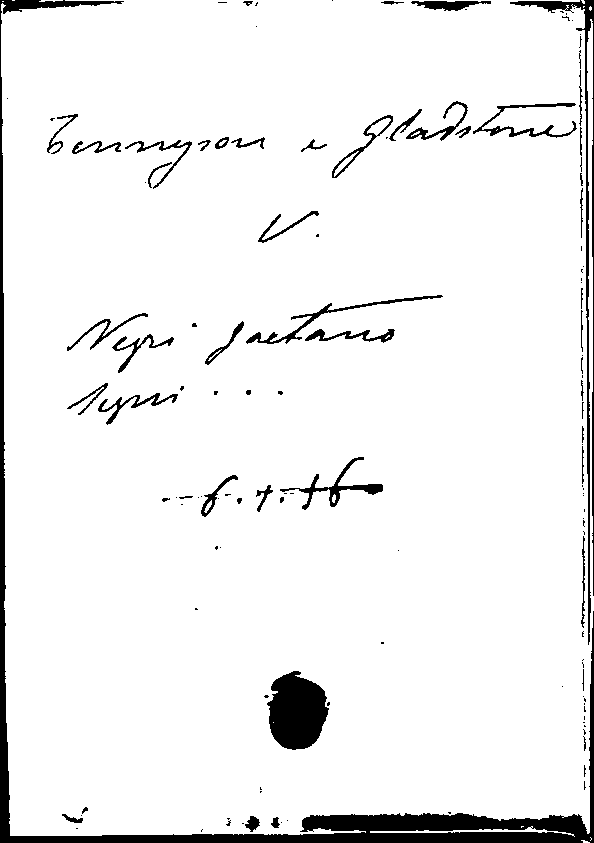 Tennyson e Gladstone
V.
Negri Gaetano
Segni . . .
6.7.36